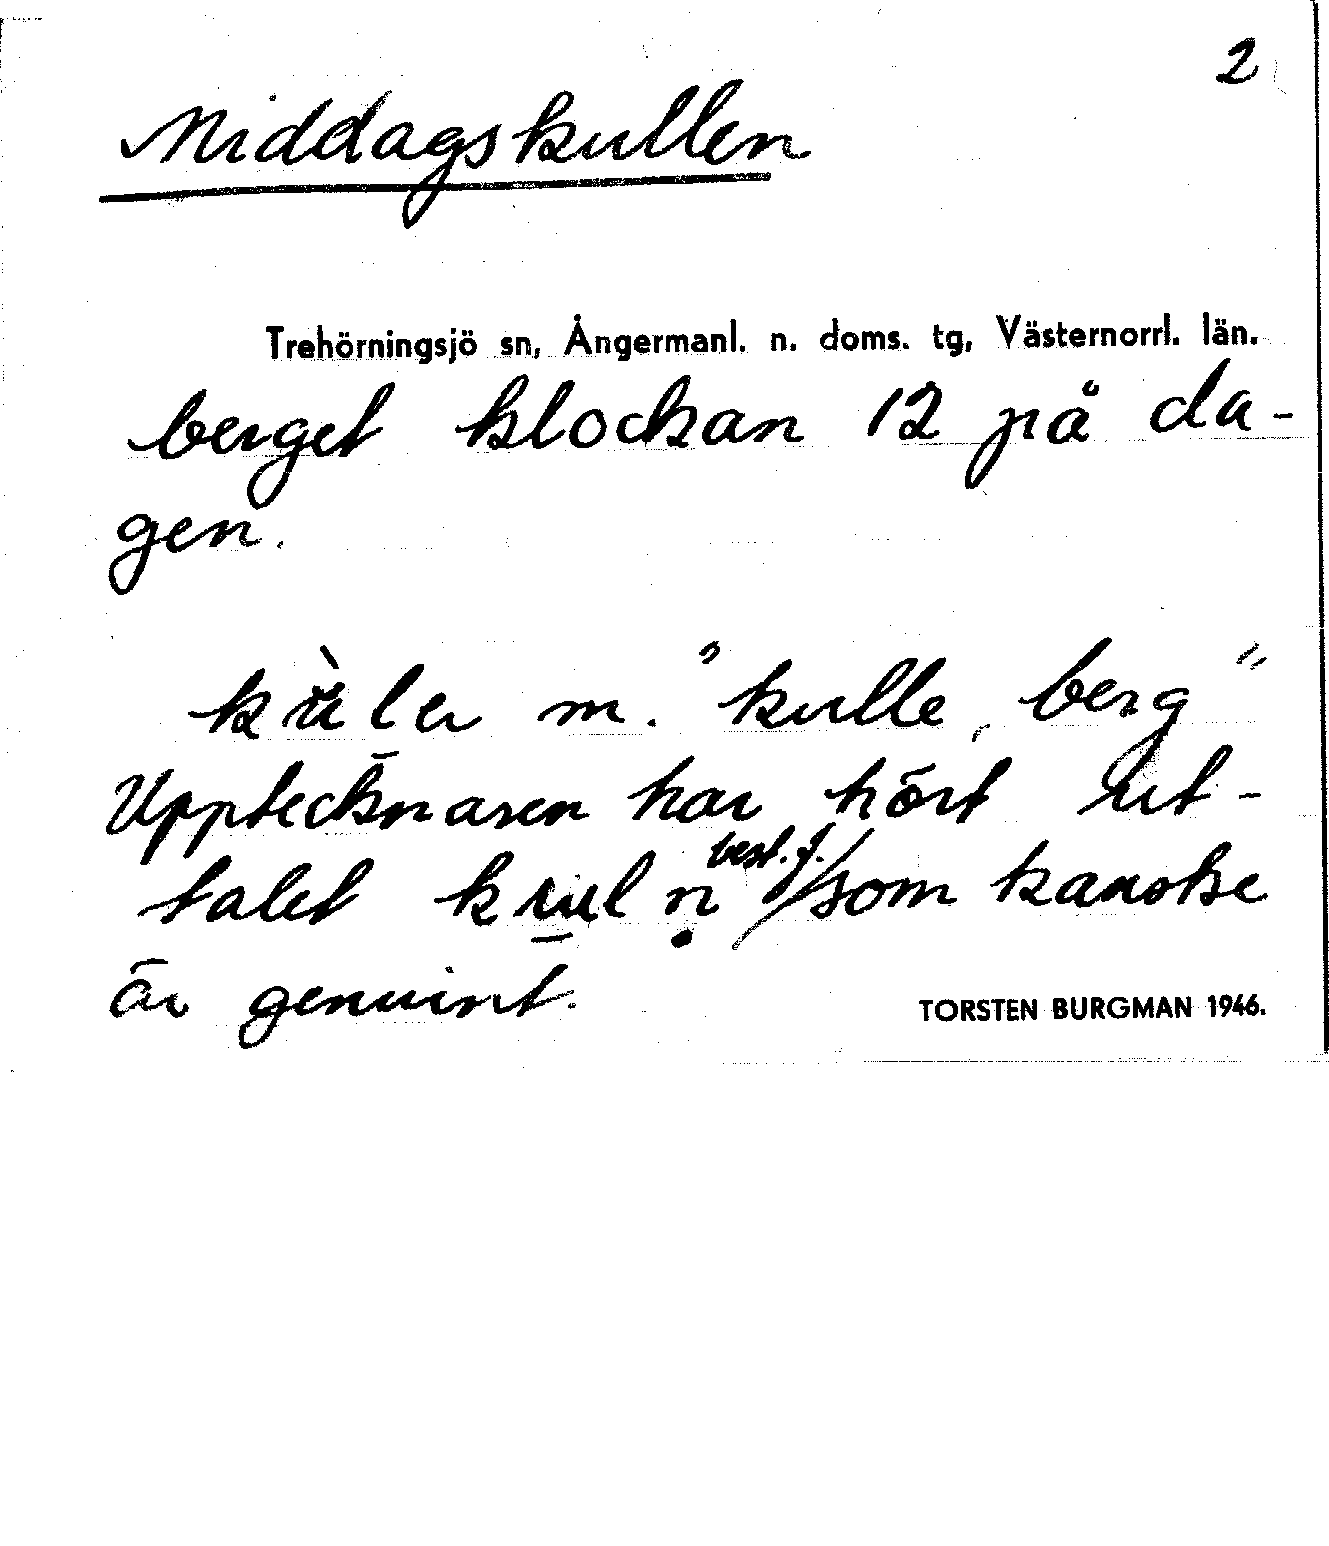 2
Middagskullen
Trehörningsjö sn, Ångermanl. n. doms. tg, Västernorrl. län.
berget klockan 12 på da-
gen.
m. "kulle, berg"
Upptecknaren har hört ut-
best. f.
talet som kanske
är genuint.
TORSTEN BURGMAN 1946.